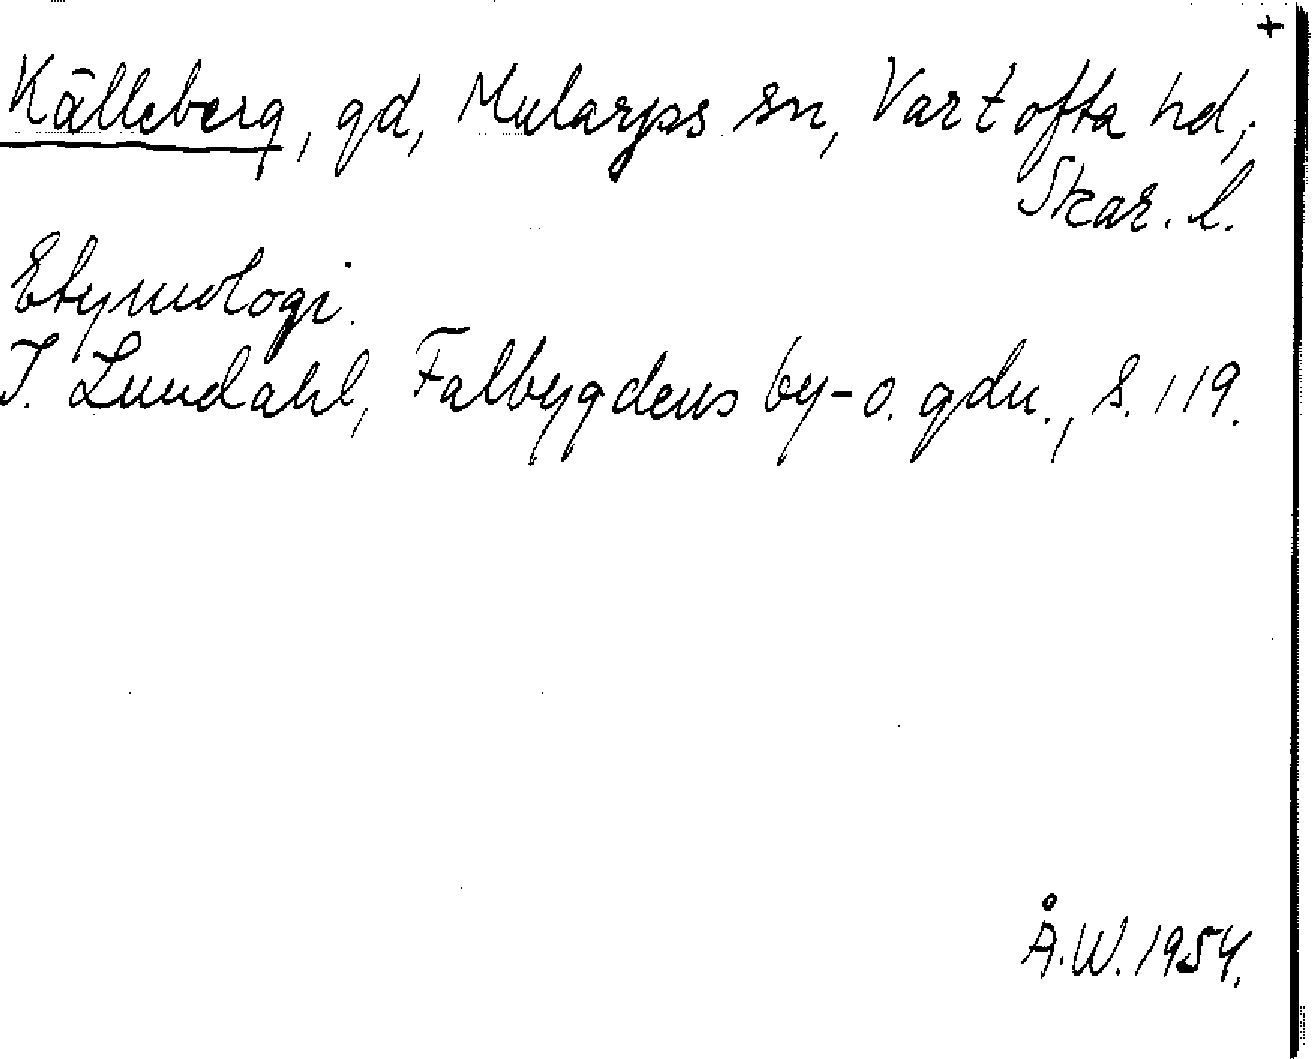 +
Källeberg, gd, Mularps sn, Vartofta hd,
Skar. l.
Etymologi.
I. Lundahl, Falbygdens by- o. gdn., s. 119.
Å.W. 1954.